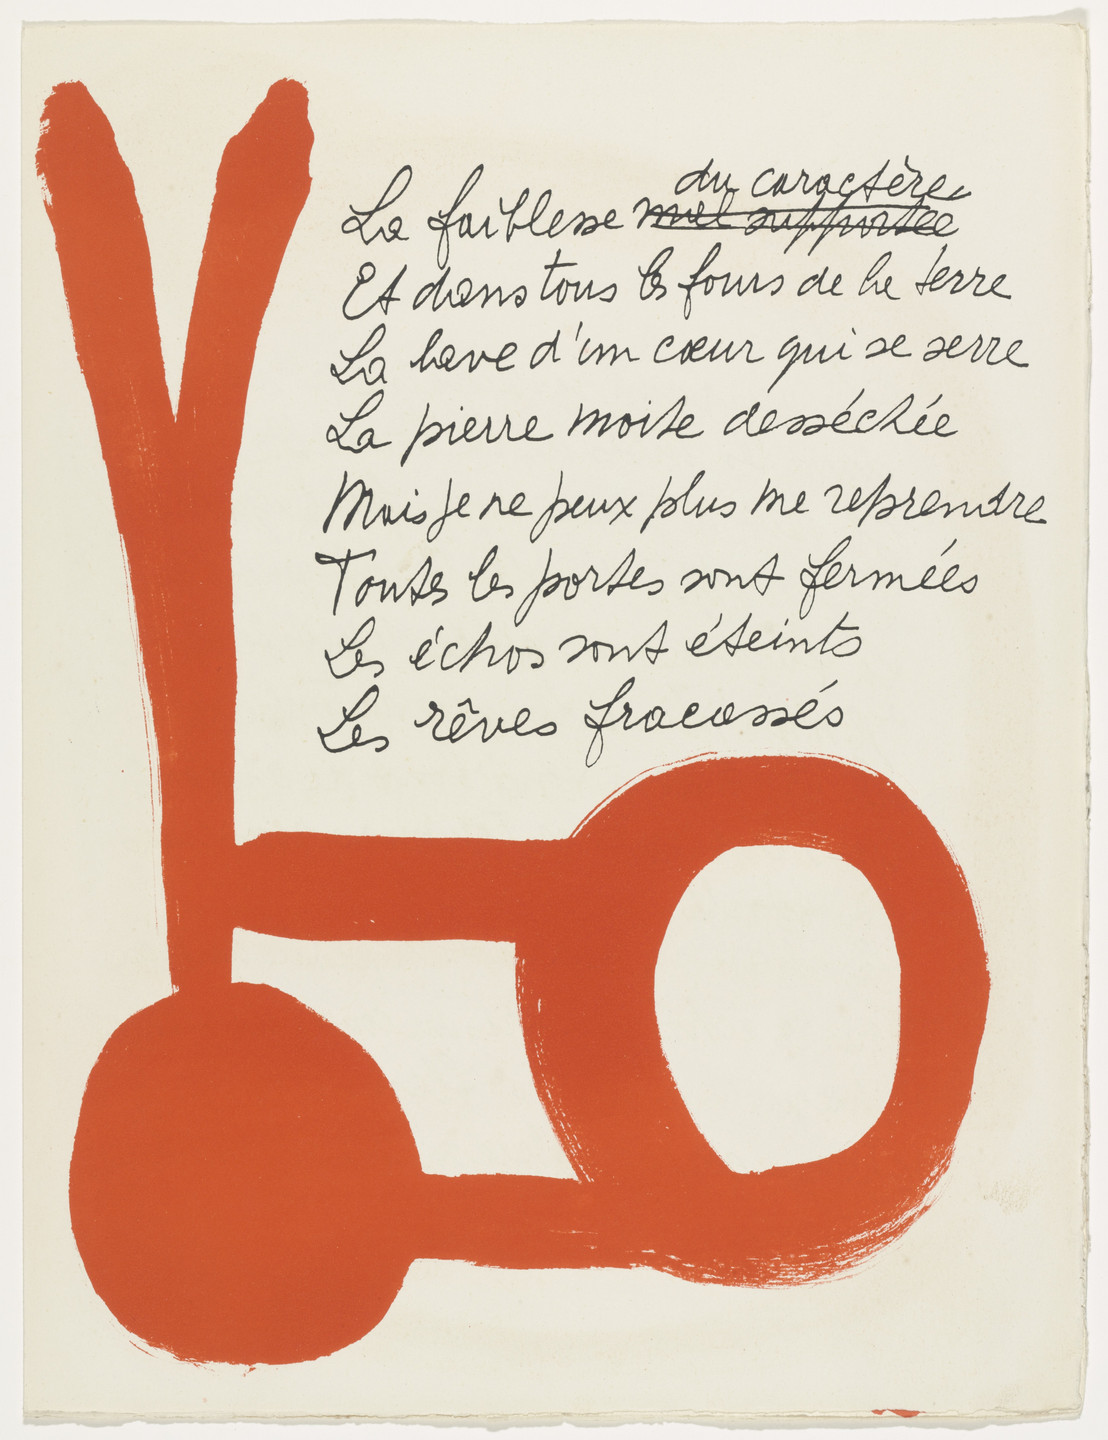 du caractère
La faiblesse mal supportée
Et dans tous les fours de la terre
La lave d'un cœur qui se serre
La pierre moite desséchée
Mais je ne peux plus me reprendre
Toutes les portes sont fermées
Les échos sont éteints
Les rêves fracassés